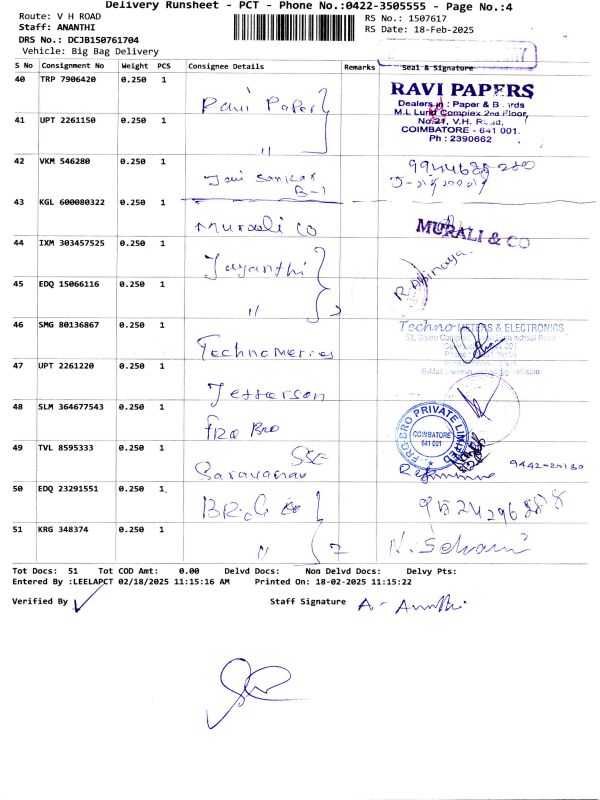 Delivery Runsheet - PCT - Phone No.:0422-3505555 - Page No.:4
Route: V H ROAD
RS No.: 1507617
Staff: ANANTHI
RS Date: 18-Feb-2025
DRS No.: DCJB150761704
Vehicle: Big Bag Delivery
S No Consignment No Weight PCS Consignee Details Remarks Seal & Signature
40 TRP 7906420 0.250 1
Ravi Paper
RAVI PAPERS
Dealers in : Paper & Boards
M.L Lund Complex 2nd Floor,
No.21, V.H. Road,
COIMBATORE - 641 001.
Ph : 2390662
41 UPT 2261150 0.250 1
"
42 VKM 546280 0.250 1
Jai Sankar
B-1
43 KGL 600080322 0.250 1
Murali Co
MURALI & CO
44 IXM 303457525 0.250 1
Jayanthi
R. Abinaya
45 EDQ 15066116 0.250 1
" 2
46 SMG 80136867 0.250 1
Techno Metries
Techno METERS & ELECTRONICS
47 UPT 2261220 0.250 1
Jefferson
48 SLM 364677543 0.250 1
Fro Bro
FRO BRO PRIVATE LIMITED
COIMBATORE
641 001
49 TVL 8595333 0.250 1
Saravanan
9442-20130
50 EDQ 23291551 0.250 1
51 KRG 348374 0.250 1
" 2
N. Selvam
Tot Docs: 51 Tot COD Amt: 0.00 Delvd Docs: Non Delvd Docs: Delvy Pts:
Entered By :LEELAPCT 02/18/2025 11:15:16 AM Printed On: 18-02-2025 11:15:22
Verified By
Staff Signature A. Ananthi